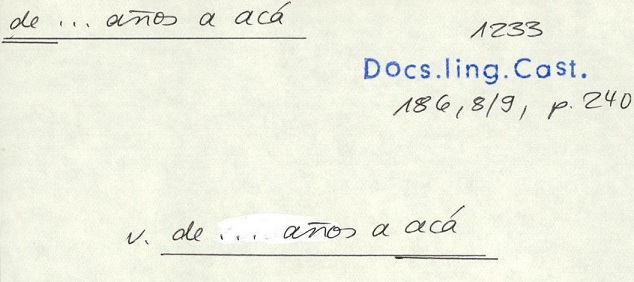 de ... años a acá
1233
Docs.ling.Cast.
186, 8/9, p. 240
v. de ... años a acá